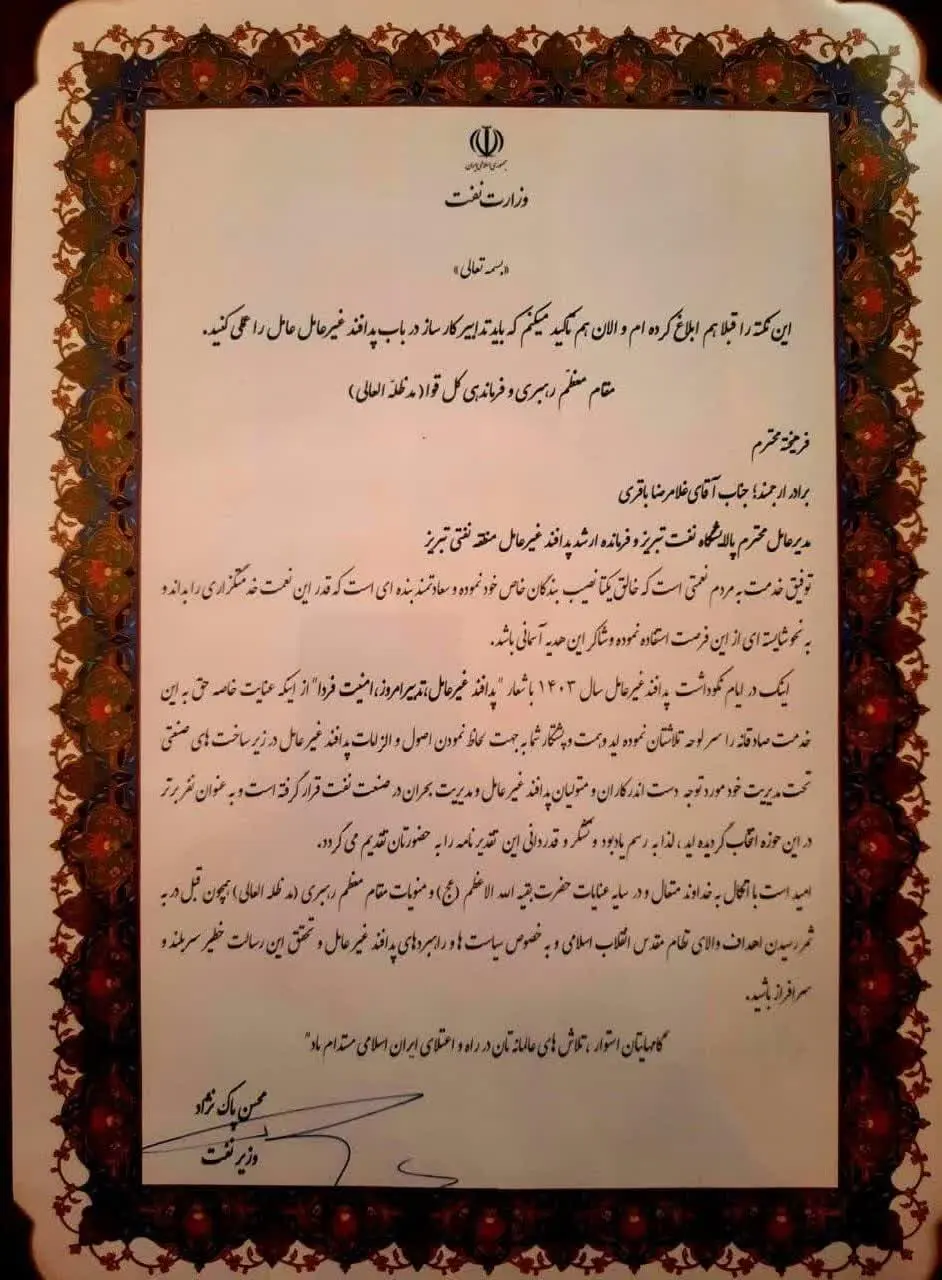 جمهوری اسلامی ایران
وزارت نفت
«بسمه تعالی»
این نکته را قبلا هم ابلاغ کرده ام و الان هم تأکید میکنم که باید تدابیر کار ساز در باب پدافند غیرعامل عامل را عملی کنید.
مقام معظّم رهبری و فرماندهی کل قوا (مد ظلّه العالی)
فرهیخته محترم
برادر ارجمند؛ جناب آقای غلامرضا باقری
مدیرعامل محترم پالایشگاه نفت تبریز و فرمانده ارشد پدافند غیرعامل منطقه نفتی تبریز
توفیق خدمت به مردم نعمتی است که خالق یکتا نصیب بندگان خاص خود نموده و سعادتمند بنده ای است که قدر این نعمت خدمتگزاری را بداند و
به نحو شایسته ای از این فرصت استفاده نموده و شاکر این هدیه آسمانی باشد.
اینک در ایام نکوداشت پدافند غیرعامل سال ۱۴۰۳ با شعار "پدافند غیرعامل،تدبیر امروز،امنیت فردا" از اینکه عنایت خاصه حق به این
خدمت صادقانه را سرلوحه تلاشتان نموده اید و همت و پشتکار شما به جهت لحاظ نمودن اصول و الزامات پدافند غیرعامل در زیرساخت های صنعتی
تحت مدیریت خود مورد توجه دست اندرکاران و متولیان پدافند غیرعامل و مدیریت بحران در صنعت نفت قرار گرفته است و به عنوان نفر برتر
در این حوزه انتخاب گردیده اید، لذا به رسم یادبود و تشکر و قدردانی این تقدیرنامه را به حضورتان تقدیم می گردد.
امید است با اتکال به خداوند متعال و در سایه عنایات حضرت بقیه الله الاعظم (عج) و منویات مقام معظم رهبری (مد ظله العالی) همچون قبل در به
ثمر رسیدن اهداف والای نظام مقدس انقلاب اسلامی و به خصوص سیاست ها و راهبردهای پدافند غیرعامل و تحقق این رسالت خطیر سربلند و
سرافراز باشید.
گامهایتان استوار، تلاش های عالمانه تان در راه و اعتلای ایران اسلامی مستدام باد"
محسن پاک نژاد
وزیر نفت